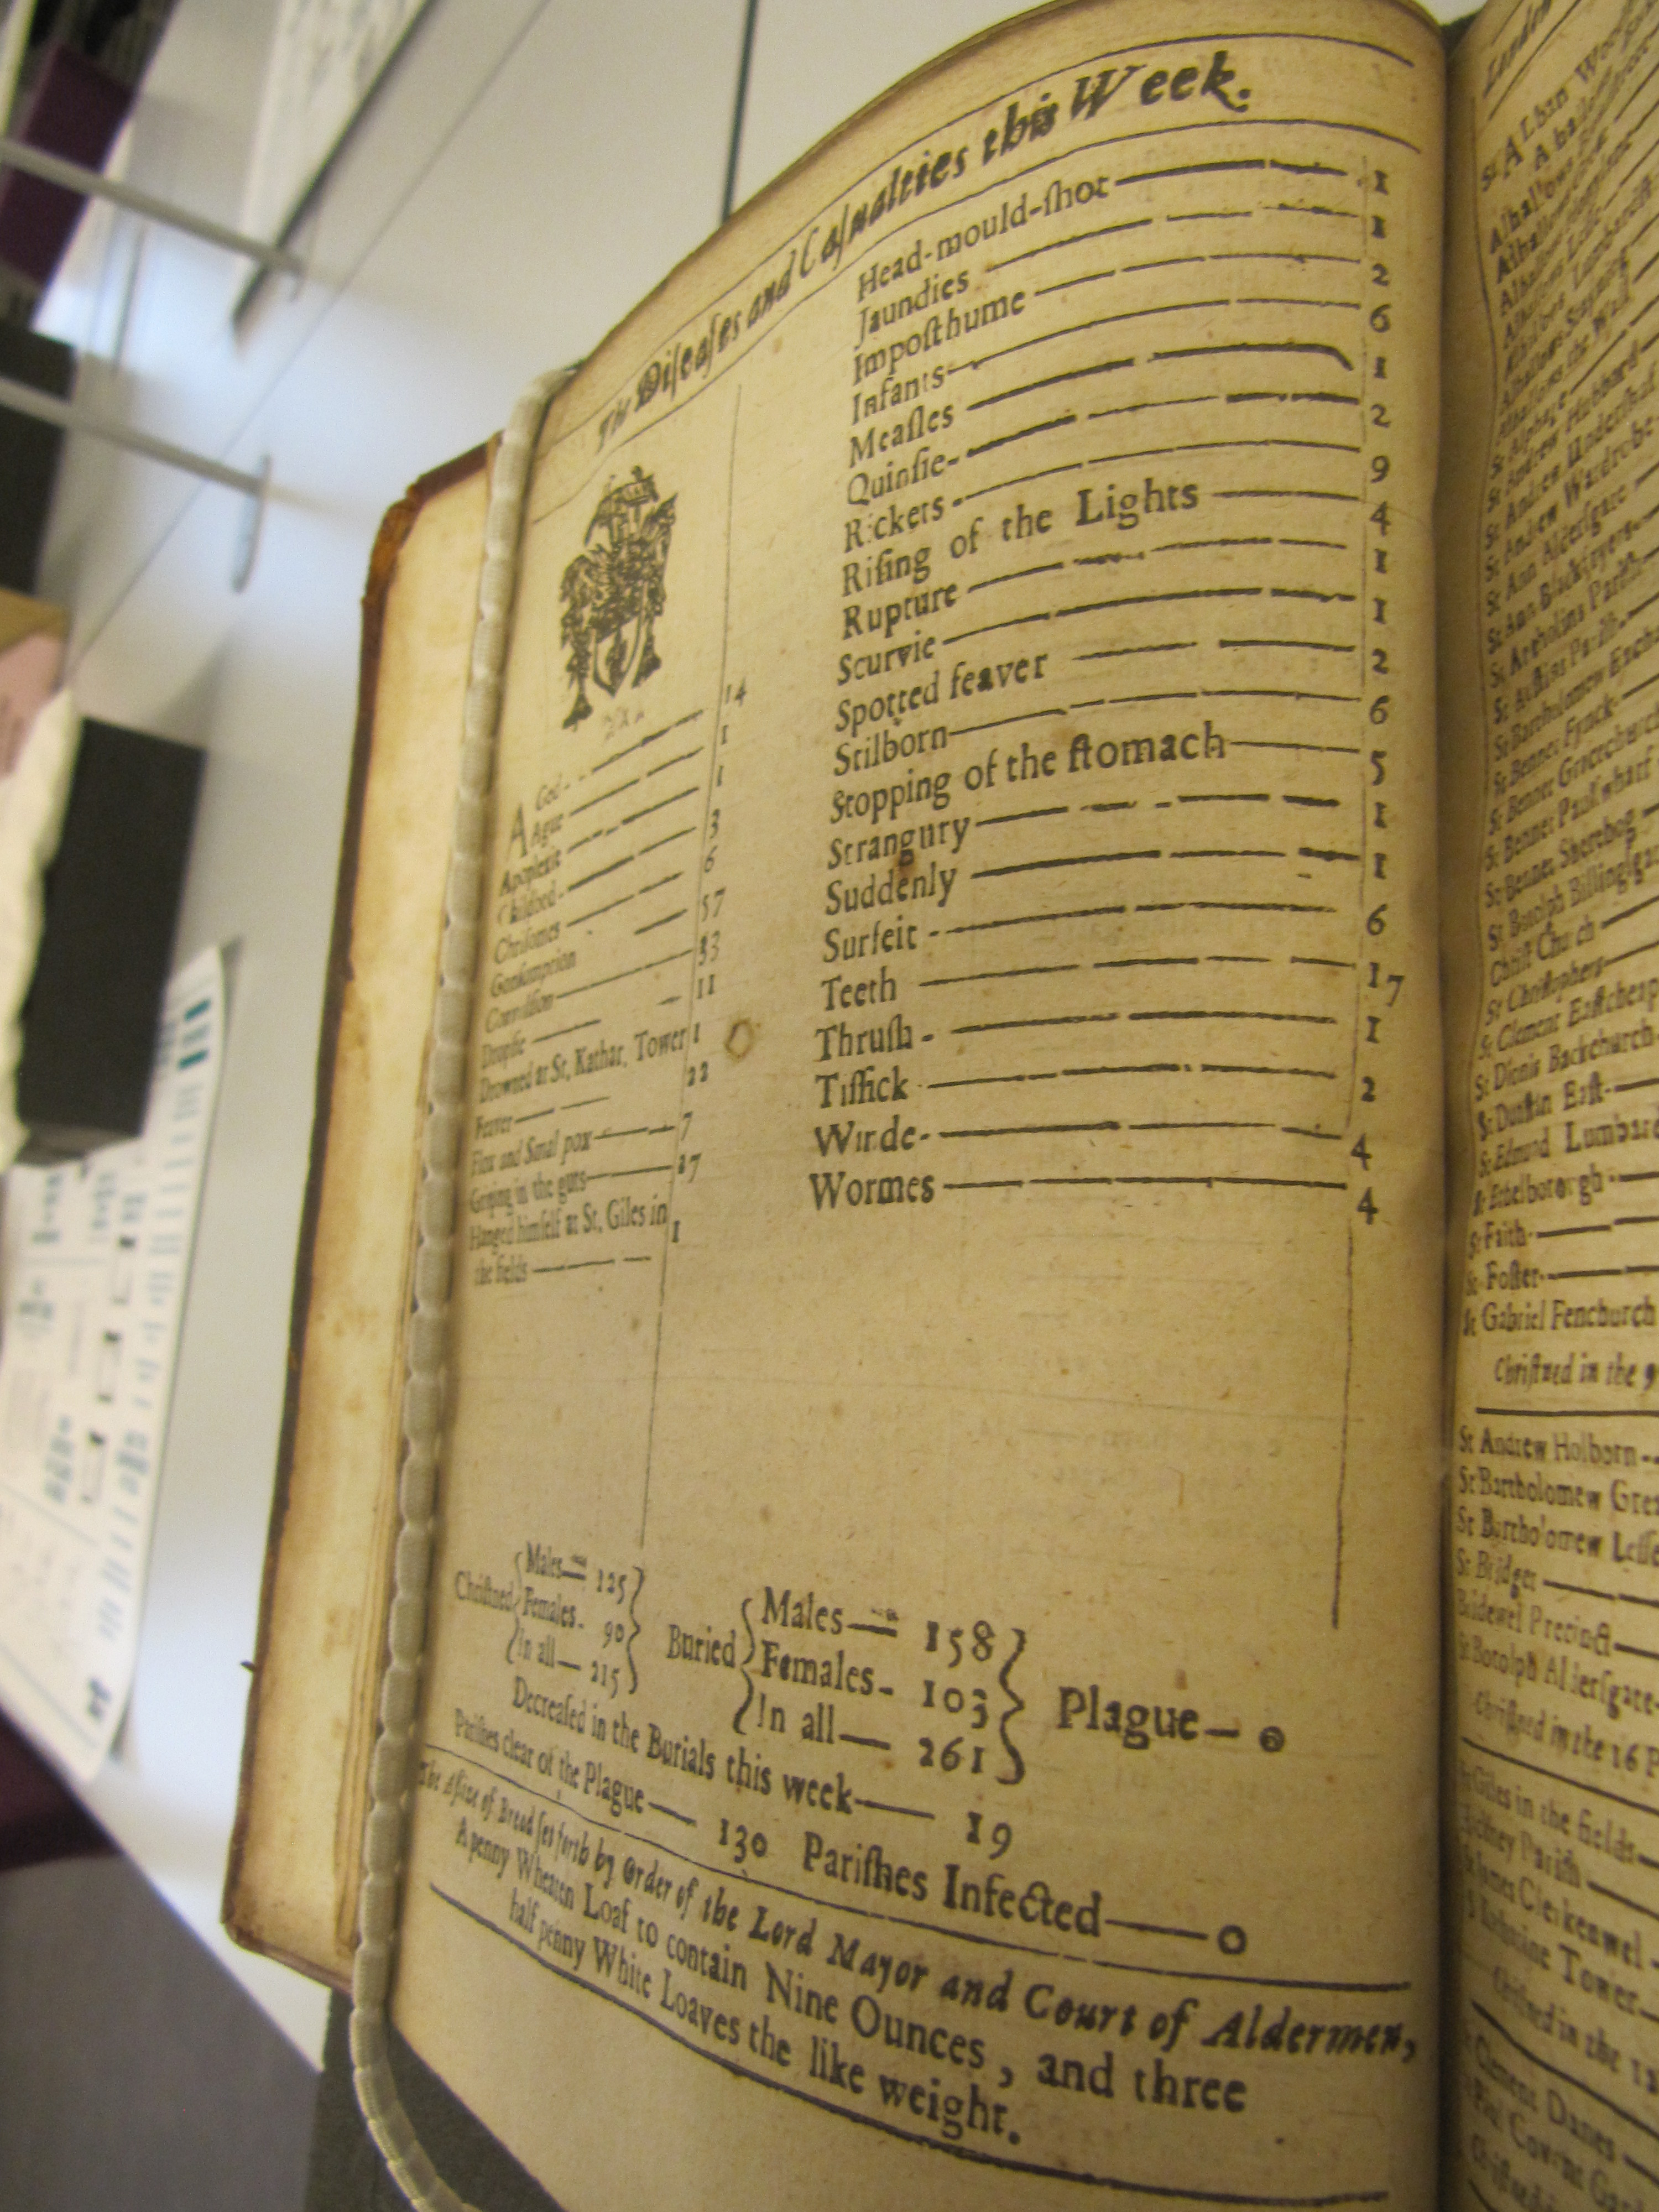 The Diſeaſes and Caſualties this Week.
AGed 14
Ague 1
Apoplexie 1
Childbed 3
Chriſomes 6
Conſumption 57
Convulſion 33
Dropſie 11
Drowned at St. Kathar. Tower 1
Feaver 22
Flox and Small pox 7
Griping in the guts 27
Hanged himſelf at St. Giles in
the fields 1
Head-mould-ſhot 1
Jaundies 1
Impoſthume 2
Infants 6
Meaſles 1
Quinſie 2
Rickets 9
Riſing of the Lights 4
Rupture 1
Scurvie 1
Spotted feaver 2
Stilborn 6
Stopping of the ſtomach 5
Strangury 1
Suddenly 1
Surfeit 6
Teeth 17
Thruſh 1
Tiſſick 2
Winde 4
Wormes 4
Chriſtned
Males 125
Females 90
In all 215
Buried
Males 158
Females 103
In all 261
Plague 0
Decreaſed in the Burials this week 19
Pariſhes clear of the Plague 130 Pariſhes Infected 0
The Aſſize of Bread ſet forth by Order of the Lord Mayor and Court of Aldermen,
A penny Wheaten Loaf to contain Nine Ounces, and three
half penny White Loaves the like weight.
London
St ALban Wood
Alhallows
St Andrew Hubbard
St Andrew Underſhaf
St Andrew Wardrobe
St Ann Alderſgate
St Ann Blackfryers
St Antholins Pariſh
St Auſtins Pariſh
St Bartholomew Exchan
St Bennet Fynck
St Bennet Gracechurch
St Bennet Paulſwharf
St Bennet Sherehog
St Botolph Billingſgat
Chriſt Church
St Chriſtophers
St Clement Eaſtcheap
St Dionis Backchurch
St Dunſtan Eaſt
St Edmund Lumbard
St Ethelborough
St Faith
St Foſter
St Gabriel Fenchurch
Chriſtned in the 9
St Andrew Holborn
St Bartholomew Grea
St Bartholomew Leſſe
St Bridget
Bridewel Precinct
St Botolph Alderſgate
Chriſtned in the 16 P
St Giles in the fields
Hackney Pariſh
St James Clerkenwel
St Katharine Tower
Chriſtned in the 12
St Clement Danes
St Paul Covent Gar
Chriſtned in